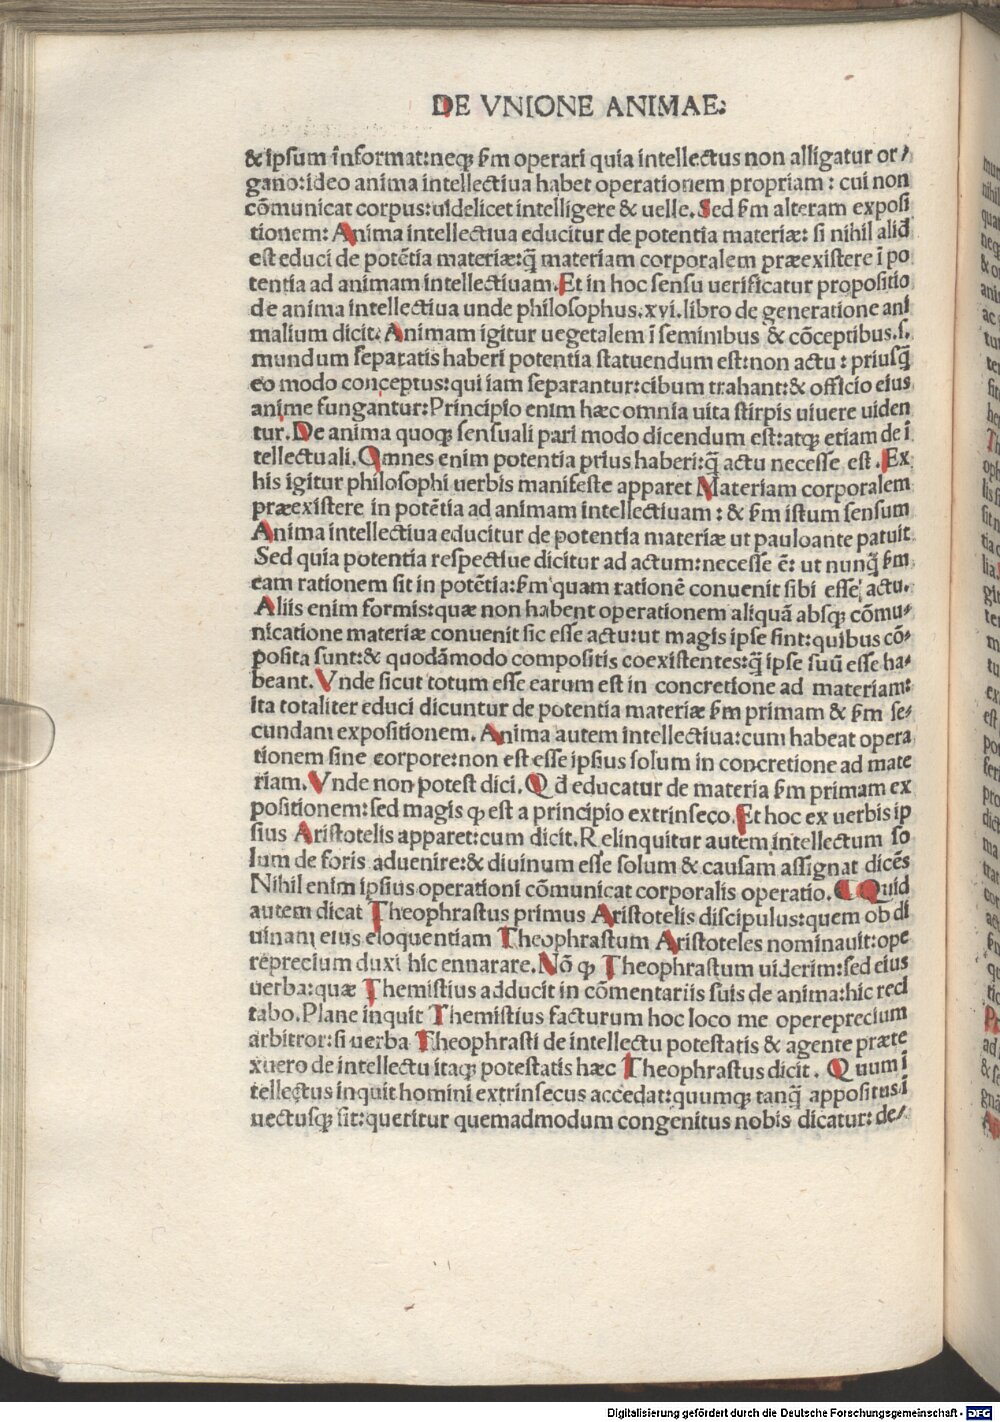 DE VNIONE ANIMAE:
& ipſum informat:neqꝫ ẜm operari quia intellectus non alligatur or/
gano:ideo anima intellectiua habet operationem propriam : cui non
cōmunicat corpus:uidelicet intelligere & uelle. Sed ẜm alteram expoſi
tionem: Anima intellectiua educitur de potentia materiæ: ſi nihil aliđ
eſt educi de potētia materiæ:q̄ materiam corporalem præexiſtere ī po
tentia ad animam intellectiuam. Et in hoc ſenſu uerificatur propoſitio
de anima intellectiua unde philoſophus.xvi.libro de generatione ani
malium dicit: Animam igitur uegetalem ī ſeminibus & cōceptibus.ſ.
mundum ſeparatis haberi potentia ſtatuendum eſt:non actu : priuſq̄
eo modo conceptus:qui iam ſeparantur:cibum trahant:& officio eius
anime fungantur:Principio enim hæc omnia uita ſtirpis uiuere uiden
tur. De anima quoqꝫ ſenſuali pari modo dicendum eſt:atqꝫ etiam de ī
tellectuali. Omnes enim potentia prius haberi:q̄ actu neceſſe eſt . Ex
his igitur philoſophi uerbis manifeſte apparet Materiam corporalem
præexiſtere in potētia ad animam intellectiuam : & ẜm iſtum ſenſum
Anima intellectiua educitur de potentia materiæ ut pauloante patuit
Sed quia potentia reſpectiue dicitur ad actum:neceſſe ē: ut nunq̄ ẜm
eam rationem ſit in potētia:ẜm quam rationē conuenit ſibi eſſe actu.
Aliis enim formis:quæ non habent operationem aliquā abſqꝫ cōmu/
nicatione materiæ conuenit ſic eſſe actu:ut magis ipſe ſint:quibus cō/
poſita ſunt:& quodāmodo compoſitis coexiſtentes:q̄ ipſe ſuū eſſe ha/
beant. Vnde ſicut totum eſſe earum eſt in concretione ad materiam:
ita totaliter educi dicuntur de potentia materiæ ẜm primam & ẜm ſe/
cundam expoſitionem. Anima autem intellectiua:cum habeat opera
tionem ſine corpore:non eſt eſſe ipſius ſolum in concretione ad mate
riam. Vnde non poteſt dici. Qđ educatur de materia ẜm primam ex
poſitionem:ſed magis ꝙ eſt a principio extrinſeco. Et hoc ex uerbis ip
ſius Ariſtotelis apparet:cum dicit.Relinquitur autem intellectum ſo
lum de foris aduenire:& diuinum eſſe ſolum & cauſam aſſignat dicēs
Nihil enim ipſius operationi cōmunicat corporalis operatio. ¶ Quid
autem dicat Theophraſtus primus Ariſtotelis diſcipulus:quem ob di
uinam eius eloquentiam Theophraſtum Ariſtoteles nominauit:ope
reprecium duxi hic ennarare. Nō ꝙ Theophraſtum uiderim:ſed eius
uerba:quæ Themiſtius adducit in cōmentariis ſuis de anima:hic reci
tabo.Plane inquit Themiſtius facturum hoc loco me opereprecium
arbitror:ſi uerba Theophraſti de intellectu poteſtatis & agente præte
xuero de intellectu itaqꝫ poteſtatis hæc Theophraſtus dicit . Quum ī
tellectus inquit homini extrinſecus accedat:quumqꝫ tanq̄ appoſitus ī
uectuſqꝫ ſit:queritur quemadmodum congenitus nobis dicatur: de/
Digitalisierung gefördert durch die Deutsche Forschungsgemeinschaft - DFG